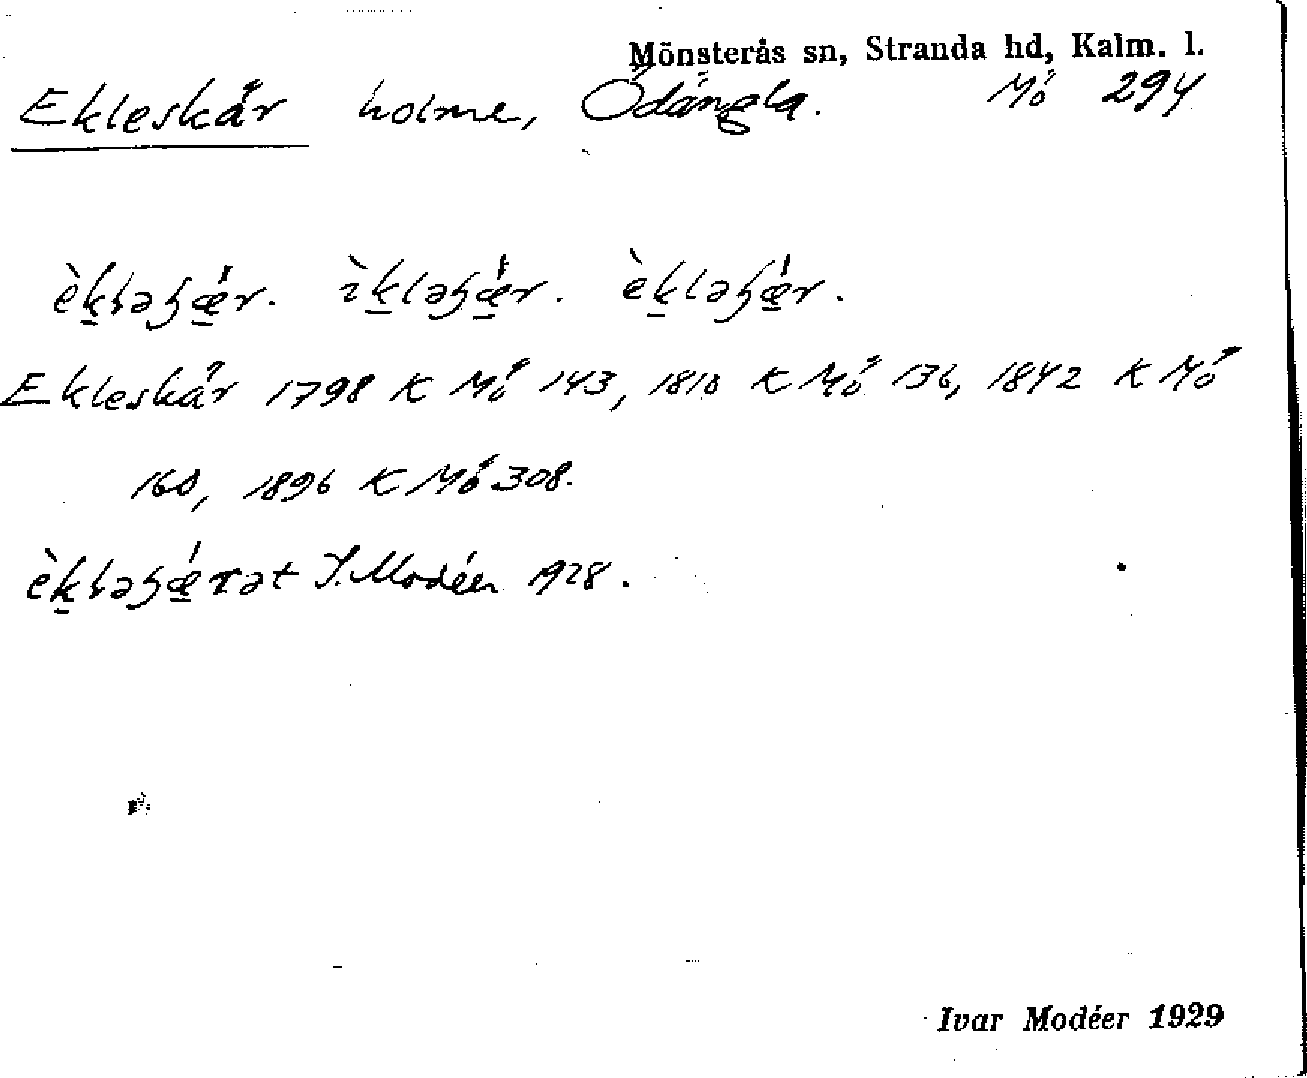 Mönsterås sn, Stranda hd, Kalm. l.
Ekleskär holme, Ödängla. Mö 294
Ekleskär 1798 K Mö 143, 1810 K Mö 136, 1842 K Mö
160, 1896 K Mö 308.
I. Modéer 1928.
Ivar Modéer 1929